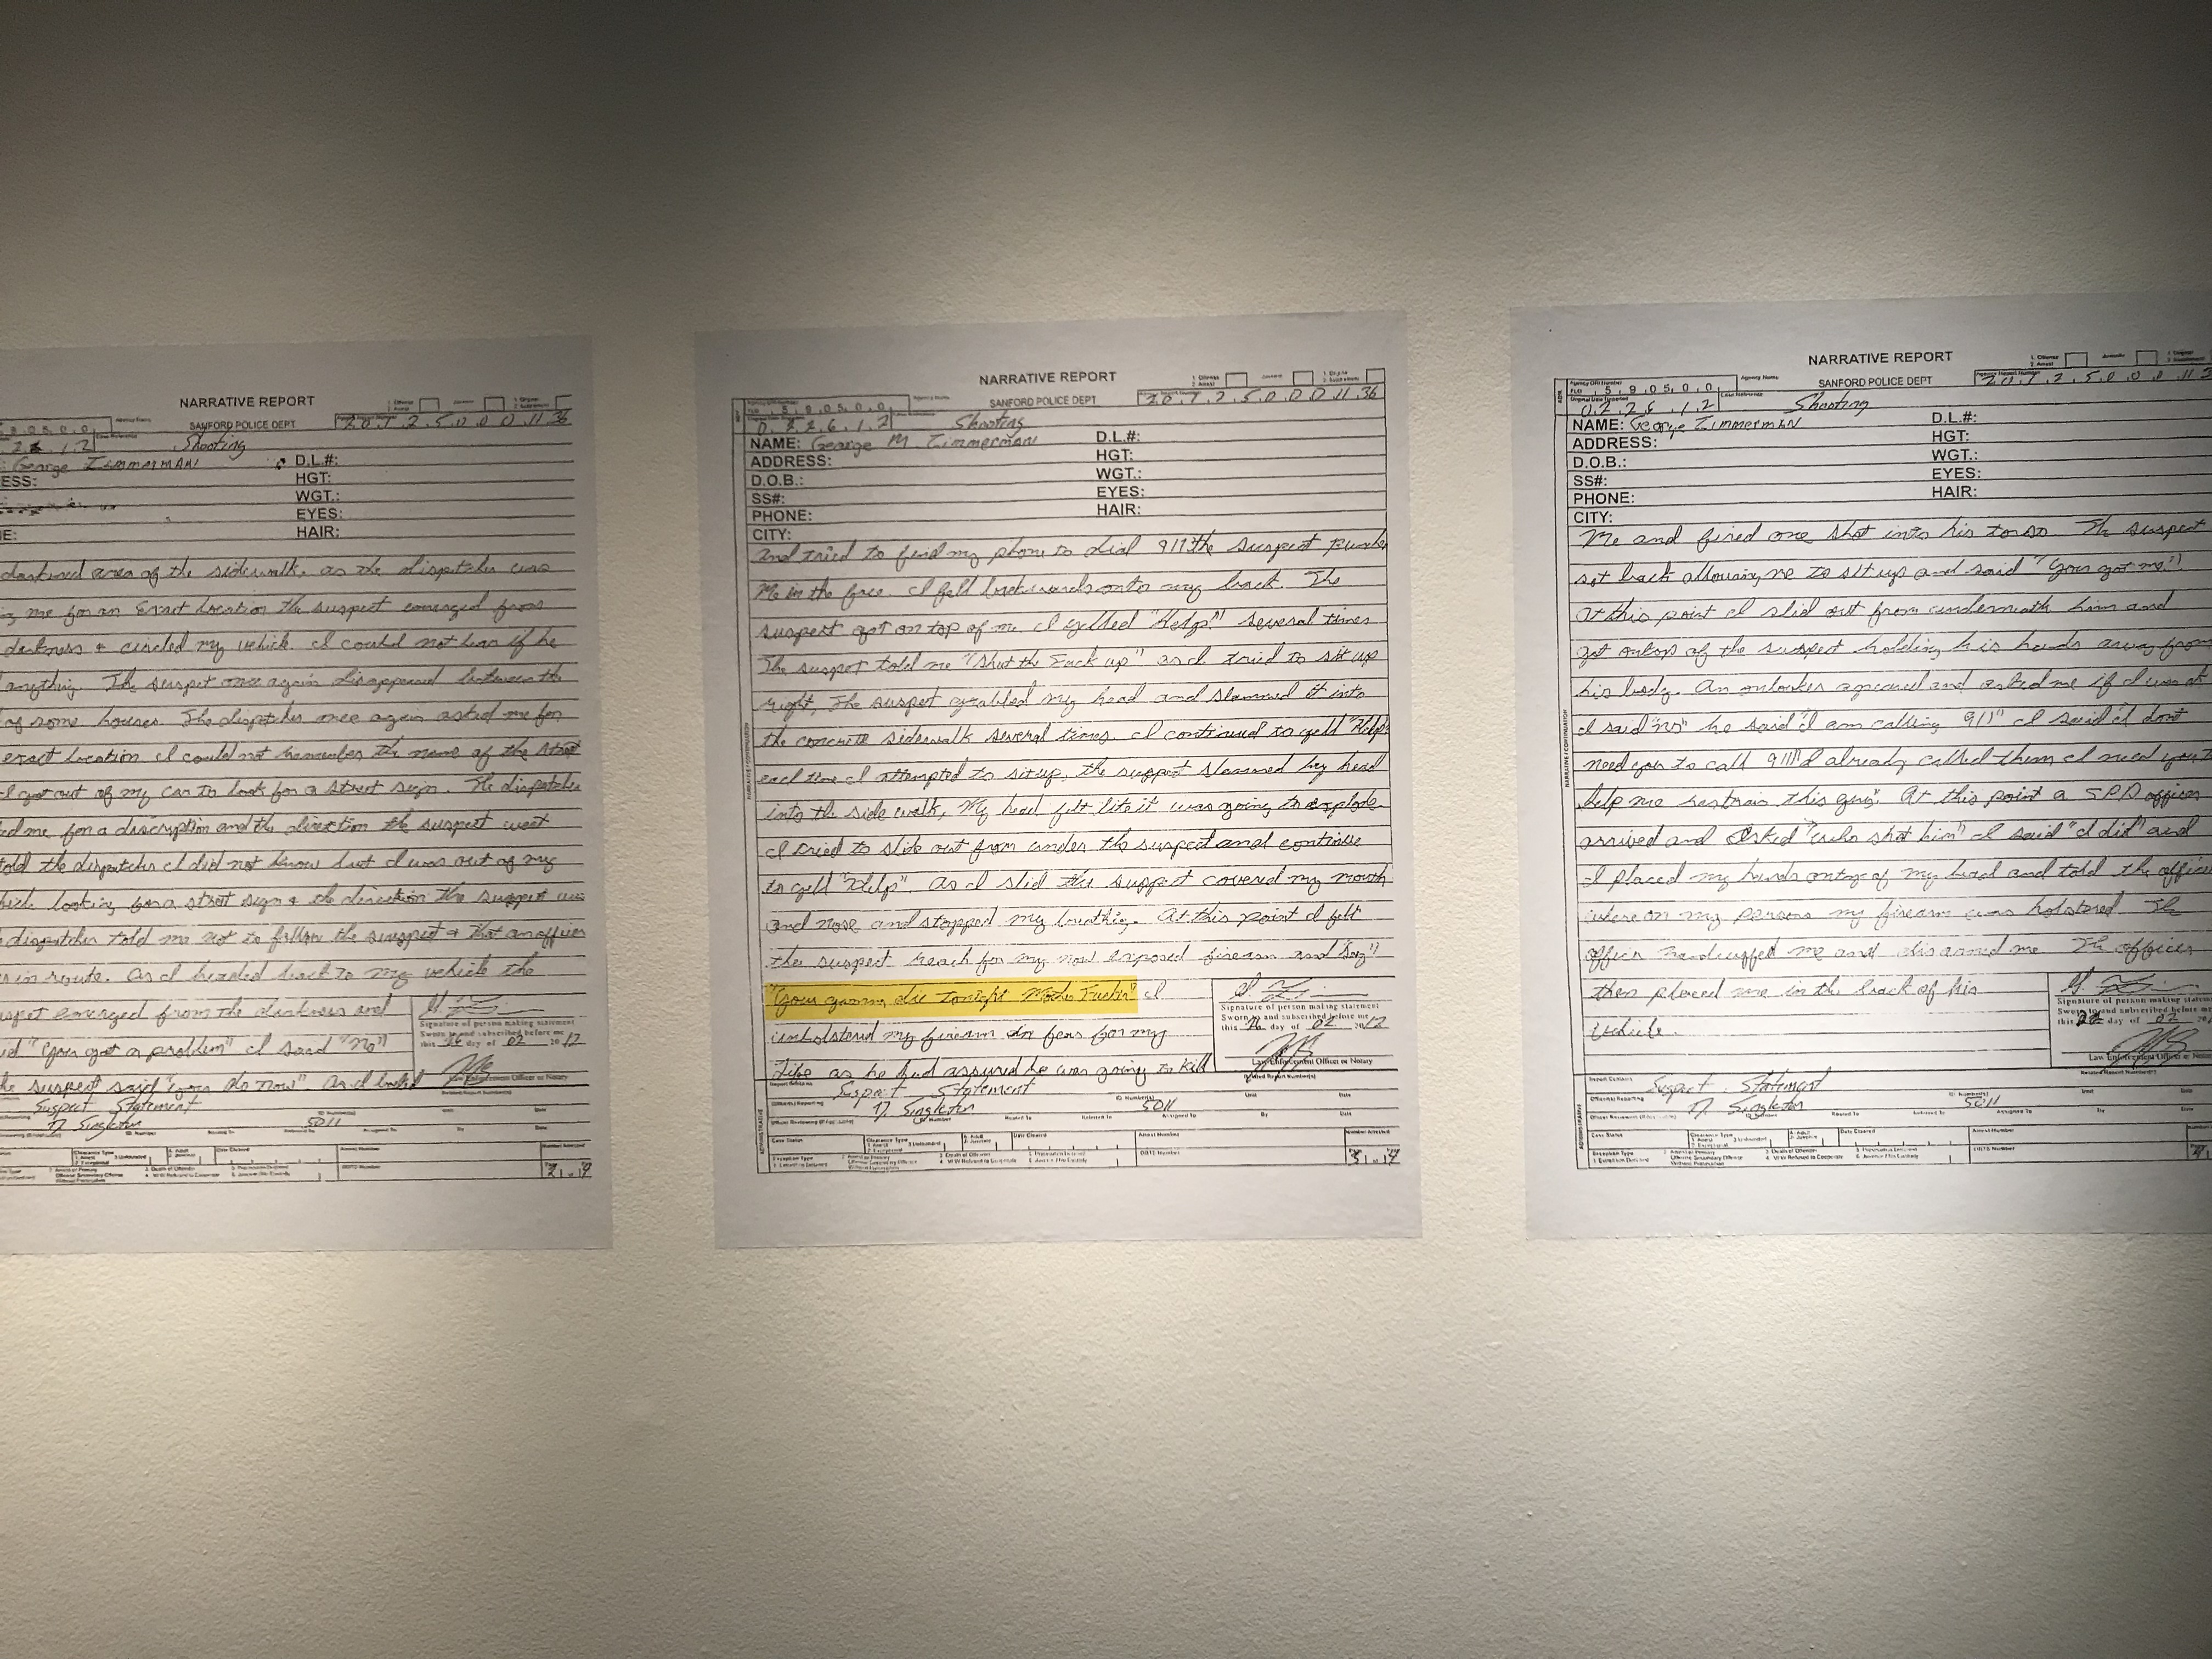 NARRATIVE REPORT
SANFORD POLICE DEPT
2 0 1 2 5 0 0 0 11 36
Shooting
George Zimmerman
D.L.#:
ESS:
HGT:
WGT.:
EYES:
E:
HAIR:
darkened area of the sidewalk. as the dispatcher was
me for an Exact location the suspect emerged from
darkness & circled my vehicle. I could not hear if he
anything. The suspect once again disappeared between the
of some houses. The dispatcher once again asked me for
exact location I could not remember the name of the street
I got out of my car to look for a street sign. The dispatcher
ed me for a discription and the direction the suspect went
told the dispatcher I did not know but I was out of my
looking for a street sign & the direction the suspect
dispatcher told me not to follow the suspect & that an officer
in route. As I headed back to my vehicle the
emerged from the darkness and
"You got a problem" I said "No"
the suspect said "you do now". As I looked
Signature of person making statement
Sworn to and subscribed before me
this 26 day of 02 2012
Law Enforcement Officer or Notary
Suspect Statement
D. Singleton
5011
NARRATIVE REPORT
SANFORD POLICE DEPT
2 0 1 2 5 0 0 0 11 36
0 2 2 6 1 2
Shooting
NAME: George M Zimmerman
D.L.#:
ADDRESS:
HGT:
D.O.B.:
WGT.:
SS#:
EYES:
PHONE:
HAIR:
CITY:
and tried to find my phone to dial 911 the suspect
Me in the face. I fell backwards onto my back. The
suspect got on top of me I yelled "Help!" several times
The suspect told me "Shut the Fuck up" as I tried to sit up
right, The suspect grabbed my head and slammed it into
the concrete sidewalk several times. I continued to yell "Help"
each time I attempted to sit up, the suspect slammed my head
into the side walk, My head felt like it was going to explode
I tried to slide out from under the suspect and continue
to yell "Help". As I slid the suspect covered my mouth
and nose and stopped my breathing. At this point I felt
the suspect reach for my now exposed firearm and say"
"Your gonna die tonight Mother Fucker" I
unholstered my firearm in fear for my
life as he had assured he was going to kill
Signature of person making statement
Sworn to and subscribed before me
this 26 day of 02 2012
Law Enforcement Officer or Notary
Suspect Statement
D. Singleton
5011
NARRATIVE REPORT
SANFORD POLICE DEPT
5 9 0 5 0 0
0 2 2 6 1 2
Shooting
NAME: George Zimmerman
D.L.#:
ADDRESS:
HGT:
D.O.B.:
WGT.:
SS#:
EYES:
PHONE:
HAIR:
CITY:
Me and fired one shot into his torso. The suspect
sat back allowing me to sit up and said "You got me"!
At this point I slid out from underneath him and
got ontop of the suspect holding his hands away from
his body. An onlooker appeared and asked me if I was ok
I said "no" he said "I am calling 911" I said I dont
need you to call 911 I already called them I need you to
help me restrain this guy". At this point a SPD officer
arrived and asked "who shot him" I said "I did" and
I placed my hands ontop of my head and told the officer
where on my persons my firearm was holstered. The
officer handcuffed me and disarmed me. The officer
then placed me in the back of his
vehicle.
Signature of person making statement
Sworn to and subscribed before me
day of 02
Law Enforcement Officer or
Suspect Statement
D. Singleton
5011